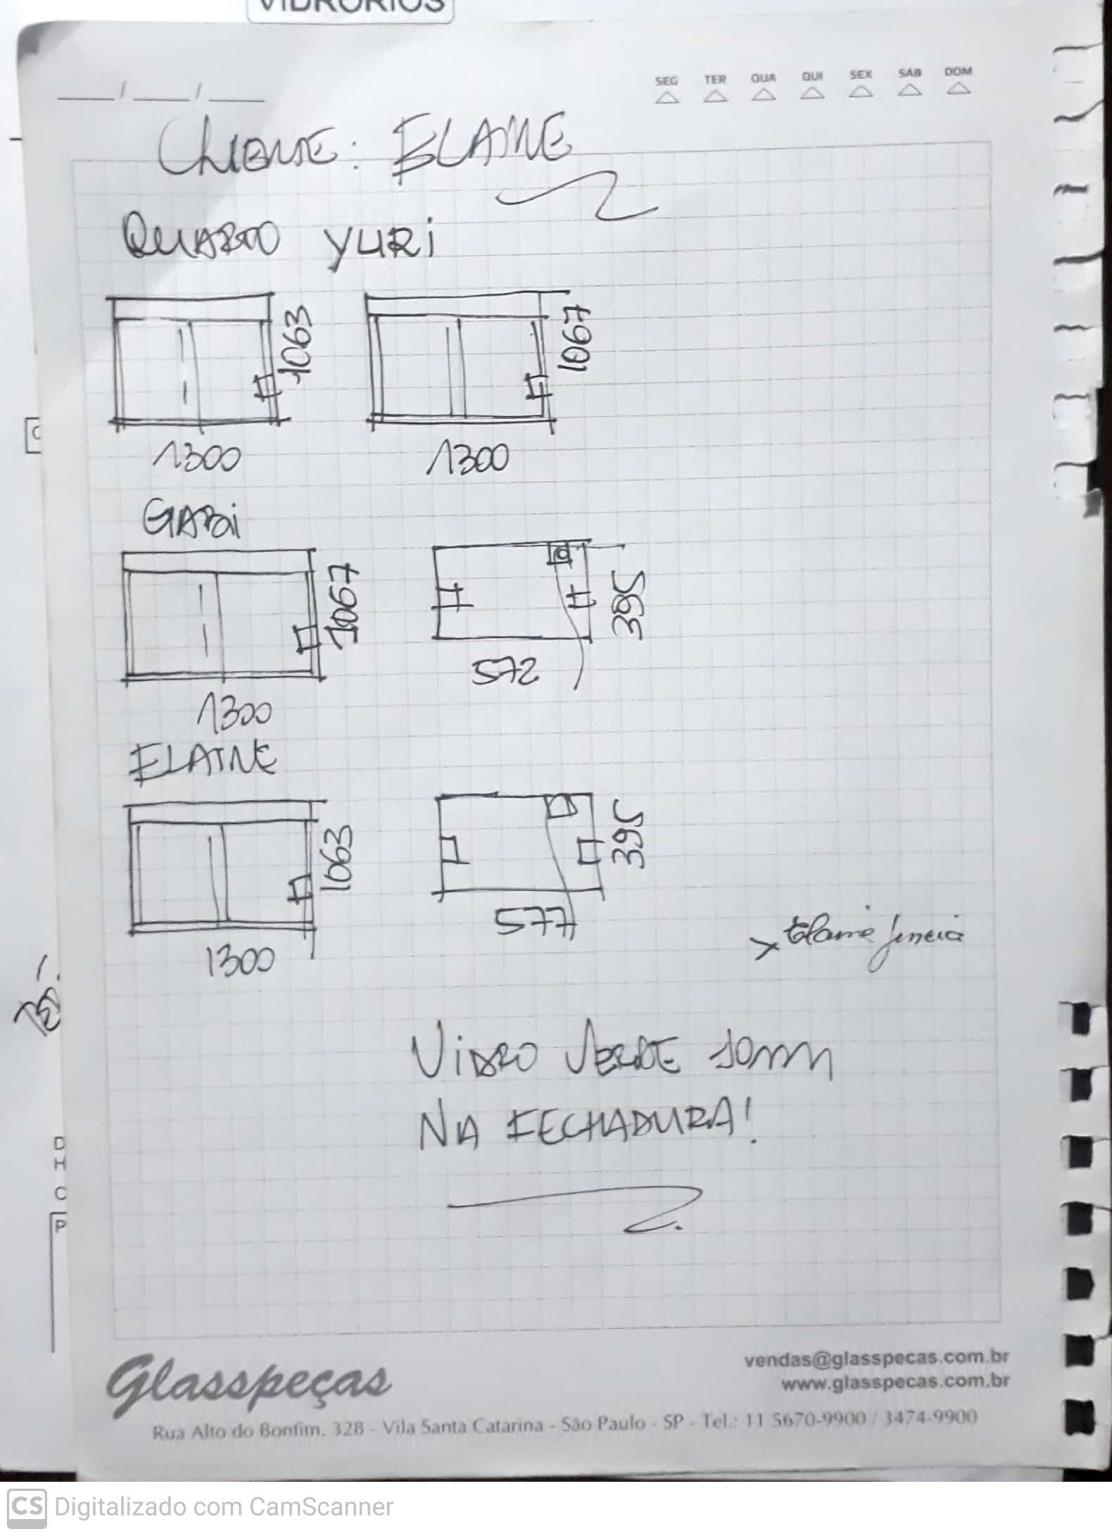 VIDRORIOS
SEG TER QUA QUI SEX SÁB DOM
CLIENTE: ELAINE
QUARTO YURI
1063 1067
1300 1300
GABI
1067 395
572
1300
ELAINE
1063 395
577
1300
x Elaine
VIDRO VERDE 10mm
NA FECHADURA!
D
H
C
P
Glasspeças
vendas@glasspecas.com.br
www.glasspecas.com.br
Rua Alto do Bonfim, 328 - Vila Santa Catarina - São Paulo - SP - Tel.: 11 5670-9900 / 3474-9900
CS Digitalizado com CamScanner